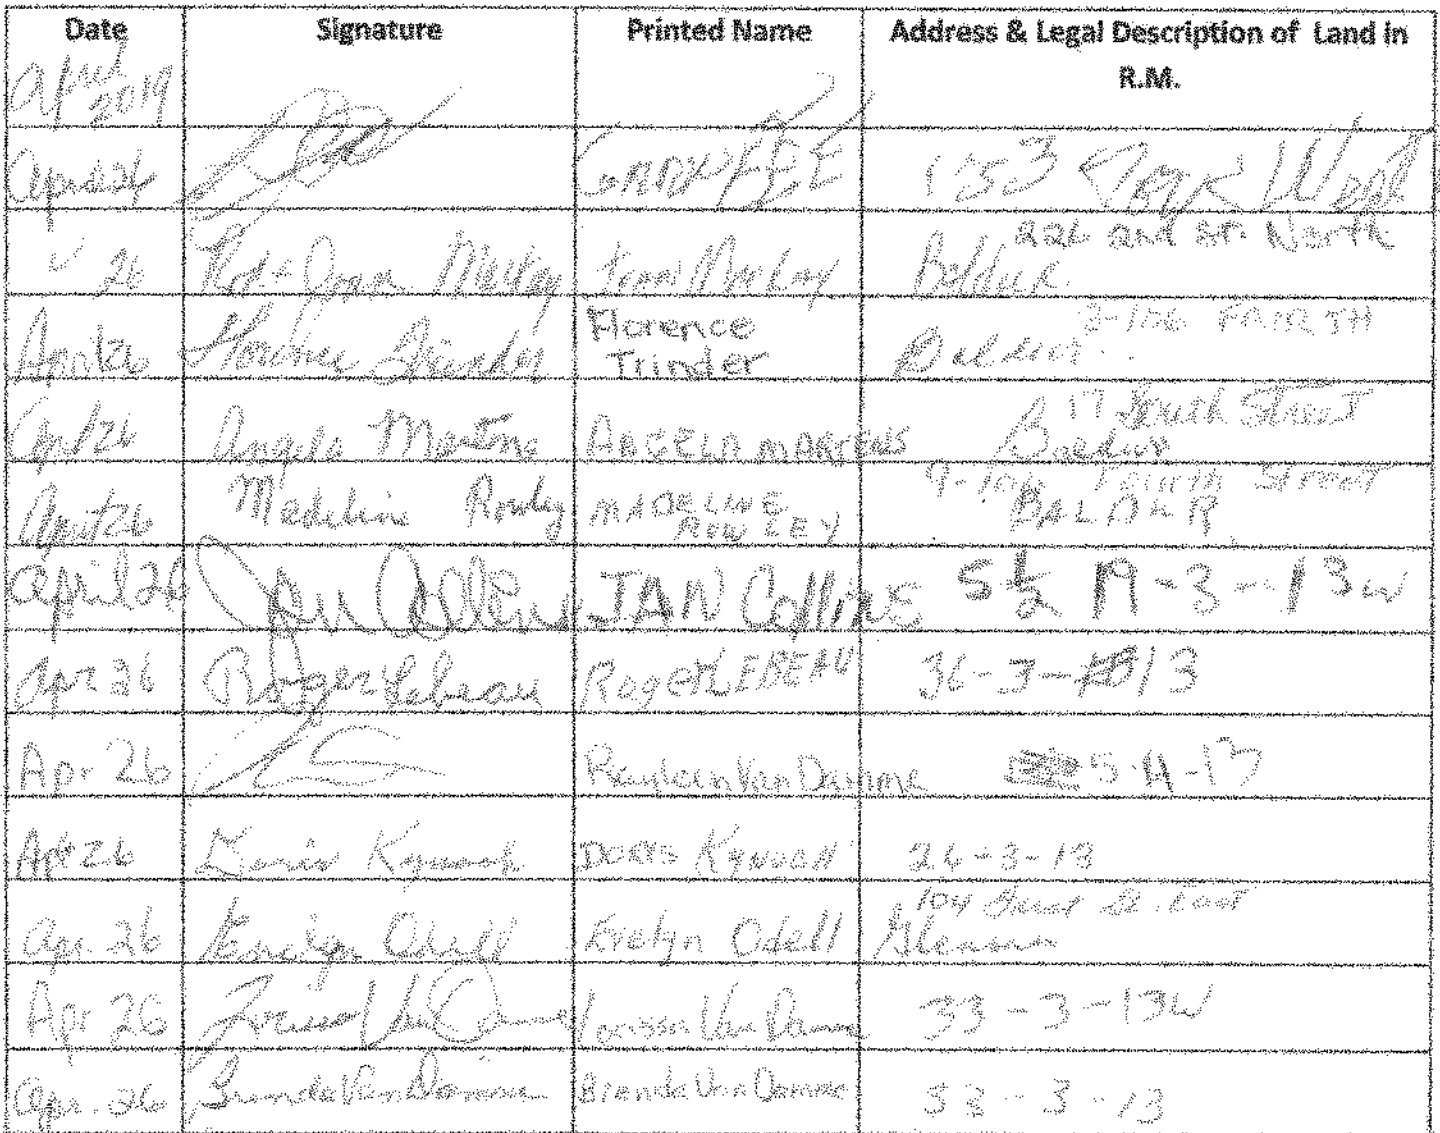 Date Signature Printed Name Address & Legal Description of Land in
R.M.
April
2019
April 26 GARRY LEE 153
26 226 2nd St. North
Baldur.
April 26 Florence Trinder Florence
Trinder
3-106 FOURTH
Baldur
April 26 Angela Martens ANGELA MARTENS 17 South Street
Baldur
April 26 Madeline Rowley MADELINE
ROWLEY
9-106 Fourth Street
BALDUR
April 26 Jan Collins JAN Collins S 1/2 19-3-13w
Apr 26 Roger Lebeau Roger LEBEAU 36-3-13
Apr 26 Rayleen Van Damme 5-4-13
Apr 26 Doris Kynoch DORIS KYNOCH 26-3-13
Apr. 26 Evelyn Odell Evelyn Odell 104 St. East
Apr 26 Van Damme 33-3-13W
Apr. 26 Brenda Van Damme Brenda Van Damme 33-3-13